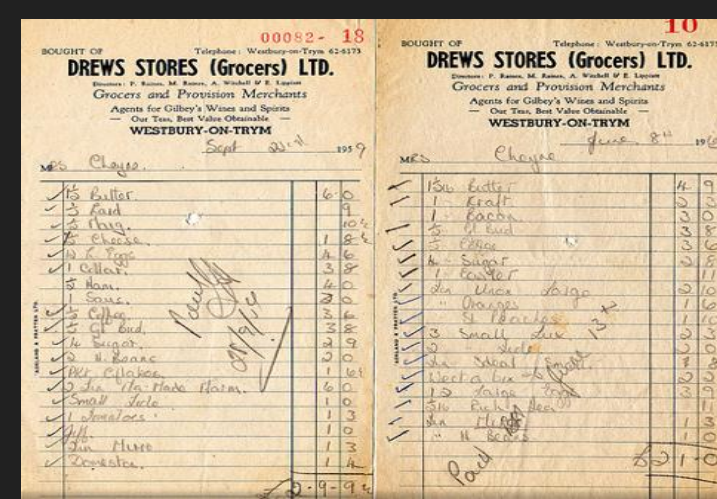 00082- 18
BOUGHT OF Telephone: Westbury-on-Trym 62-6173
DREWS STORES (Grocers) LTD.
Directors: P. Raines, M. Raines, A. Witchell & E. Lippiatt
Grocers and Provision Merchants
Agents for Gilbey's Wines and Spirits
— Our Teas, Best Value Obtainable —
WESTBURY-ON-TRYM
Sept 1959
MRS Cheyne.
1½ Butter 6 0
½ Lard 9
½ Marg. 10½
Cheese. 1 8½
Eggs 4 6
1 Collar. 3 8
Ham. 4 0
1 Saus. 3 0
½ Coffee 3 6
½ Gl Bud. 3 8
4 Sugar. 2 9
2 H. Beans 2 0
Pkt C/flakes 1 6½
2 Tin Ma-Made Marm. 6 0
Small Lido 1 0
1 Tomatoes 1 3
Jiff. 1 0
Tin Miro 1 3
Domestos. 1 4
£2-9-9½
Paid
10
BOUGHT OF Telephone: Westbury-on-Trym 62-6173
DREWS STORES (Grocers) LTD.
Directors: P. Raines, M. Raines, A. Witchell & E. Lippiatt
Grocers and Provision Merchants
Agents for Gilbey's Wines and Spirits
— Our Teas, Best Value Obtainable —
WESTBURY-ON-TRYM
June 8th 196
MRS Cheyne
1½ lb Butter 4 9
1 Kraft 2 3
1 Bacon 3 0
½ Gl Bud 3 8
½ Coffee 3 6
4 Sugar 2 8
1 11
Tin Unox Large 2 10
" Oranges 1 6
" Sl Peaches 1 10
3 Small Lux 2 3
2 Lido 2 0
Tin Ideal 1 3
Weetabix 2 2
12 Large Eggs 3 9
Rich Tea 11
Tin Miro 1 3
" H Beans 1 0
£2 1-0
Paid